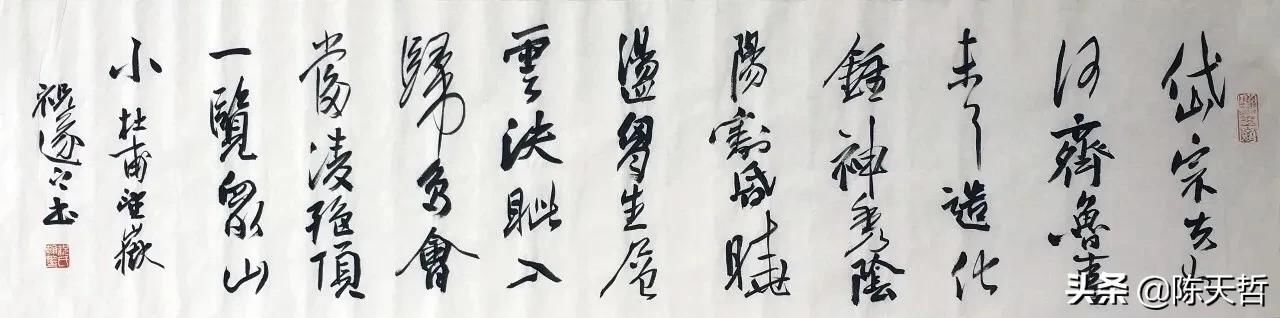 岱宗夫如
何齊魯青
未了造化
鍾神秀陰
陽割昏曉
盪胷生層
雲決眦入
歸鳥會
當凌絕頂
一覽眾山
小 杜甫望嶽
祝遂之書
头条 @陈天哲